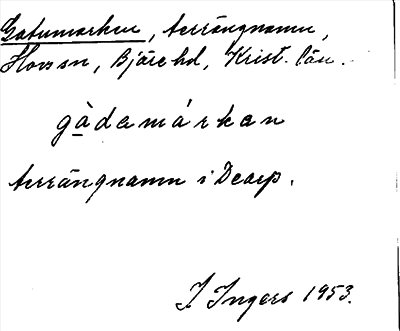 Gatumarken, terrängnamn,
Hov sn, Bjäre hd, Krist. län.
gàdamárkan
terrängnamn i Dearp.
I Ingers 1953.